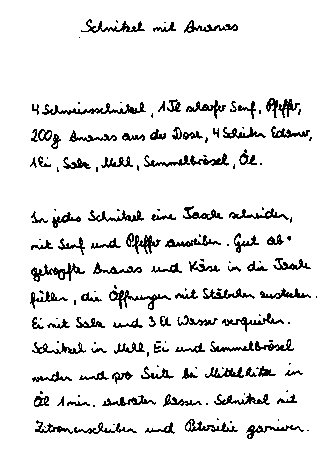 Schnitzel mit Ananas
4 Schweinsschnitzel, 1 Tl scharfer Senf, Pfeffer,
200g Ananas aus der Dose, 4 Scheiben Edamer,
1 Ei, Salz, Mehl, Semmelbrösel, Öl.
In jedes Schnitzel eine Tasche schneiden,
mit Senf und Pfeffer ausreiben. Gut ab-
getropfte Ananas und Käse in die Tasche
füllen, die Öffnungen mit Stäbchen zustecken.
Ei mit Salz und 3 El Wasser verquirlen.
Schnitzel in Mehl, Ei und Semmelbrösel
wenden und pro Seite bei Mittelhitze in
Öl 1 min. anbraten lassen. Schnitzel mit
Zitronenscheiben und Petersilie garnieren.